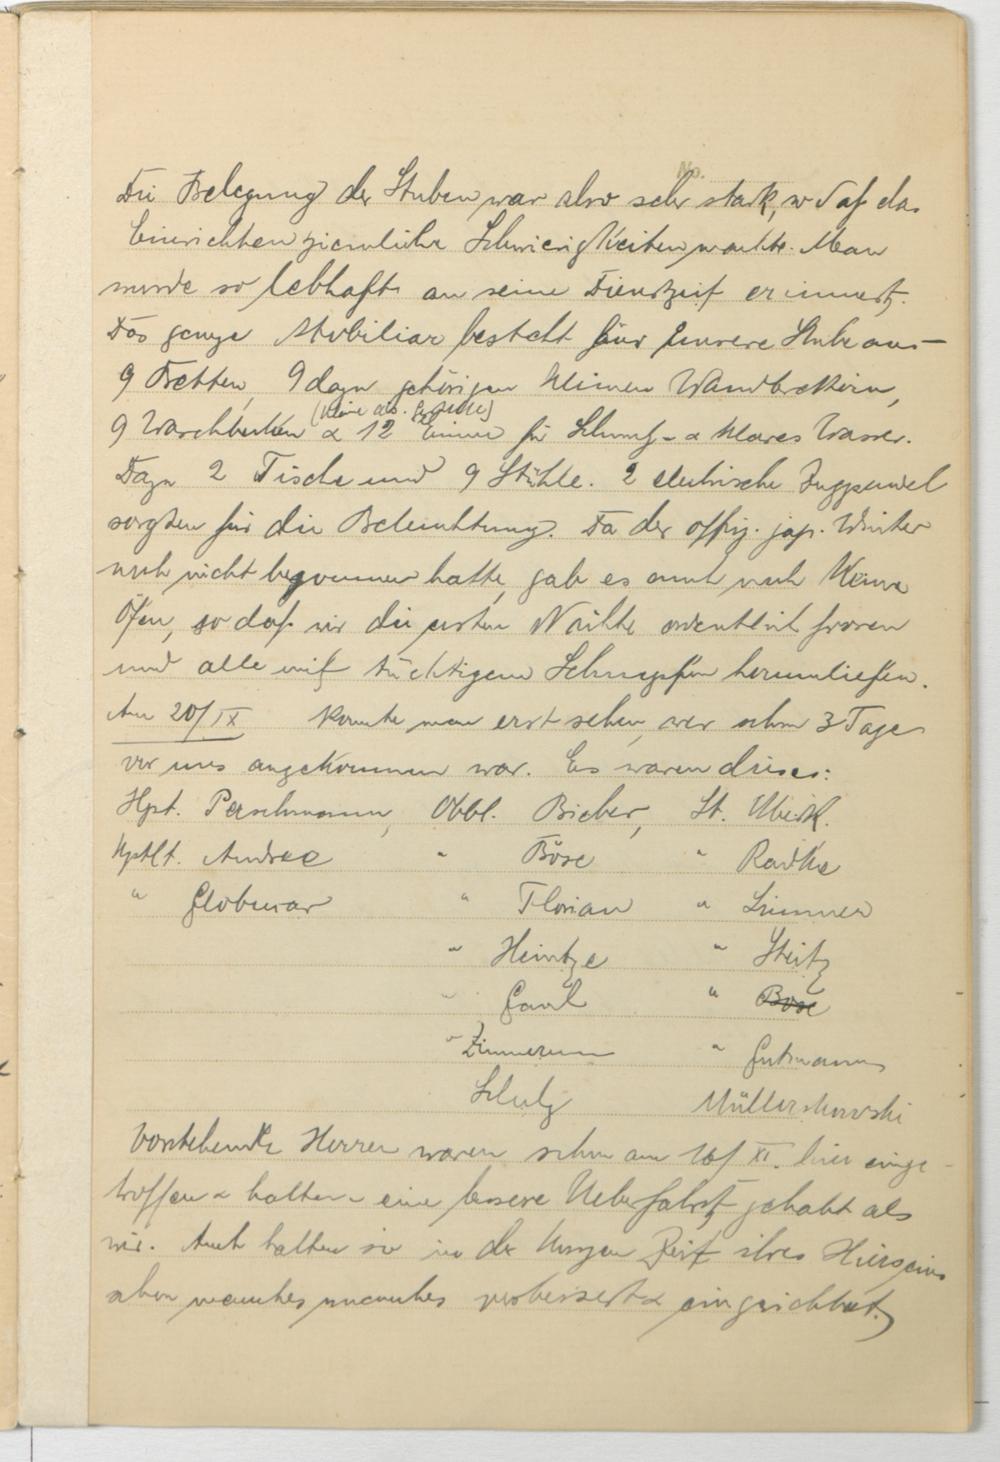 No.
Die Belegung der Stuben war also sehr stark, so daß das
Einrichten ziemliche Schwierigkeiten machte. Man
wurde so lebhaft an seine Dienstzeit erinnert.
Das ganze Mobiliar besteht für unsere Stube aus
9 Betten, 9 dazu gehörigen kleinen Wandbrettern,
9 Waschbecken & 12 Eimer für Schmutz- & klares Wasser.
Dazu 2 Tische und 9 Stühle. 2 elektrische Zugpendel
sorgten für die Beleuchtung. Da der offiz. jap. Winter
noch nicht begonnen hatte, gab es auch noch keine
Öfen, so daß wir die ersten Nächte ordentlich froren
und alle mit tüchtigem Schnupfen herumliefen.
Am 20/IX konnte man erst sehen, wer schon 3 Tage
vor uns angekommen war. Es waren dieses:
Hpt. Perschmann, Obbl. Bieber, Lt.
Kptlt. Andree " Böse " Radke
" " Florian "
" Heintze " Steitz
" Gaul " Böse
" Zimmermann " Gutmann
Schulz Müllerskowski
Vorstehende Herren waren schon am 16/XI. hier einge-
troffen & hatten eine bessere Ueberfahrt gehabt als
wir. Auch hatten sie in der kurzen Zeit ihres Hierseins
schon manches verbessert & eingerichtet.